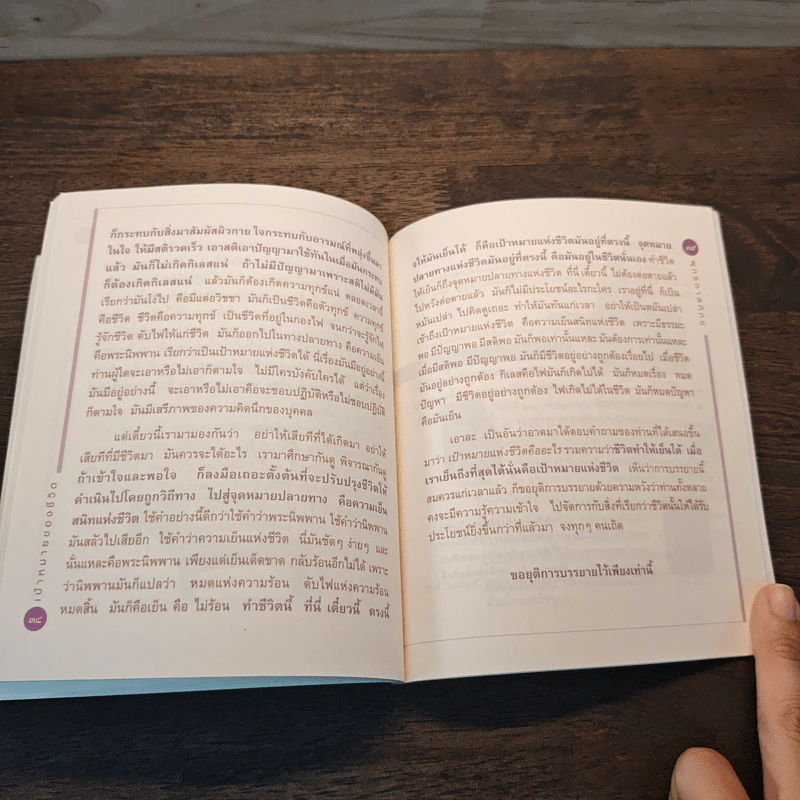 ก็กระทบกับสิ่งมาสัมผัสผิวกาย ใจกระทบกับอารมณ์ที่พลุ่งขึ้นมา
ในใจ ให้มีสติรวดเร็ว เอาสติเอาปัญญามาใช้ทันในเมื่อมันกระทบ
แล้ว มันก็ไม่เกิดกิเลสแน่ ถ้าไม่มีปัญญามาเพราะสติไม่มีมัน
ก็ต้องเกิดกิเลสแน่ แล้วมันก็ต้องเกิดความทุกข์แน่ ตลอดเวลานี้
เรียกว่ามันโง่ไป คือมีแต่อวิชชา มันก็เป็นชีวิตคือตัวทุกข์ ความทุกข์
คือชีวิต ชีวิตคือความทุกข์ เป็นชีวิตที่อยู่ในกองไฟ จนกว่าจะรู้จักไฟ
รู้จักชีวิต ดับไฟให้แก่ชีวิต มันก็ออกไปในทางปลายทาง คือความเย็น
คือพระนิพพาน เรียกว่าเป็นเป้าหมายแห่งชีวิตได้ นี่เรื่องมันมีอยู่อย่างนี้
ท่านผู้ใดจะเอาหรือไม่เอาก็ตามใจ ไม่มีใครบังคับใครได้ แต่ว่าเรื่อง
มันมีอยู่อย่างนี้ จะเอาหรือไม่เอาคือจะชอบปฏิบัติหรือไม่ชอบปฏิบัติ
ก็ตามใจ มันมีเสรีภาพของความคิดนึกของบุคคล
แต่เดี๋ยวนี้เรามามองกันว่า อย่าให้เสียทีที่ได้เกิดมา อย่าให้
เสียทีที่มีชีวิตมา มันควรจะได้อะไร เรามาศึกษากันดู พิจารณากันดู
ถ้าเข้าใจและพอใจ ก็ลงมือเถอะตั้งต้นที่จะปรับปรุงชีวิตให้
ดำเนินไปโดยถูกวิถีทาง ไปสู่จุดหมายปลายทาง คือความเย็น
สนิทแห่งชีวิต ใช้คำอย่างนี้ดีกว่าใช้คำว่าพระนิพพาน ใช้คำว่านิพพาน
มันสลัวไปเสียอีก ใช้คำว่าความเย็นแห่งชีวิต นี่มันชัดๆ ง่ายๆ และ
นั่นแหละคือพระนิพพาน เพียงแต่เย็นเด็ดขาด กลับร้อนอีกไม่ได้ เพราะ
ว่านิพพานมันก็แปลว่า หมดแห่งความร้อน ดับไฟแห่งความร้อน
หมดสิ้น มันก็คือเย็น คือ ไม่ร้อน ทำชีวิตนี้ ที่นี่ เดี๋ยวนี้ ตรงนี้
เป้าหมายของชีวิต
๓๘
จะให้มันเย็นได้ ก็คือเป้าหมายแห่งชีวิตมันอยู่ที่ตรงนี้ จุดหมาย
ปลายทางแห่งชีวิตมันอยู่ที่ตรงนี้ คือมันอยู่ในชีวิตนั่นเอง ทำชีวิต
ให้เย็นก็ถึงจุดหมายปลายทางแห่งชีวิต ที่นี่ เดี๋ยวนี้ ไม่ต้องต่อตายแล้ว
ไปหวังต่อตายแล้ว มันก็ไม่มีประโยชน์อะไรกะใคร เราอยู่ที่นี่ ก็เป็น
หมันเปล่า ไปคิดดูเถอะ ทำให้มันทันแก่เวลา อย่าให้เป็นหมันเปล่า
เข้าถึงเป้าหมายแห่งชีวิต คือความเย็นสนิทแห่งชีวิต เพราะมีธรรมะ
พอ มีปัญญาพอ มีสติพอ มันก็พอเท่านั้นแหละ มันต้องการเท่านั้นแหละ
เมื่อมีสติพอ มีปัญญาพอ มันก็มีชีวิตอยู่อย่างถูกต้องเรื่อยไป เมื่อชีวิต
มันอยู่อย่างถูกต้อง กิเลสคือไฟมันก็เกิดไม่ได้ มันก็หมดเรื่อง หมด
ปัญหา มีชีวิตอยู่อย่างถูกต้อง ไฟเกิดไม่ได้ในชีวิต มันก็หมดปัญหา
คือมันเย็น
เอาละ เป็นอันว่าอาตมาได้ตอบคำถามของท่านที่ได้เสนอขึ้น
มาว่า เป้าหมายแห่งชีวิตคืออะไร รวมความว่าชีวิตทำให้เย็นได้ เมื่อ
เราเย็นถึงที่สุดได้นั่นคือเป้าหมายแห่งชีวิต เห็นว่าการบรรยายนี้
สมควรแก่เวลาแล้ว ก็ขอยุติการบรรยายด้วยความหวังว่าท่านทั้งหลาย
คงจะมีความรู้ความเข้าใจ ไปจัดการกับสิ่งที่เรียกว่าชีวิตนั้นให้ได้รับ
ประโยชน์ยิ่งขึ้นกว่าที่แล้วมา จงทุกๆ คนเถิด
ขอยุติการบรรยายไว้เพียงเท่านี้
๓๙
พุทธทาสภิกขุ